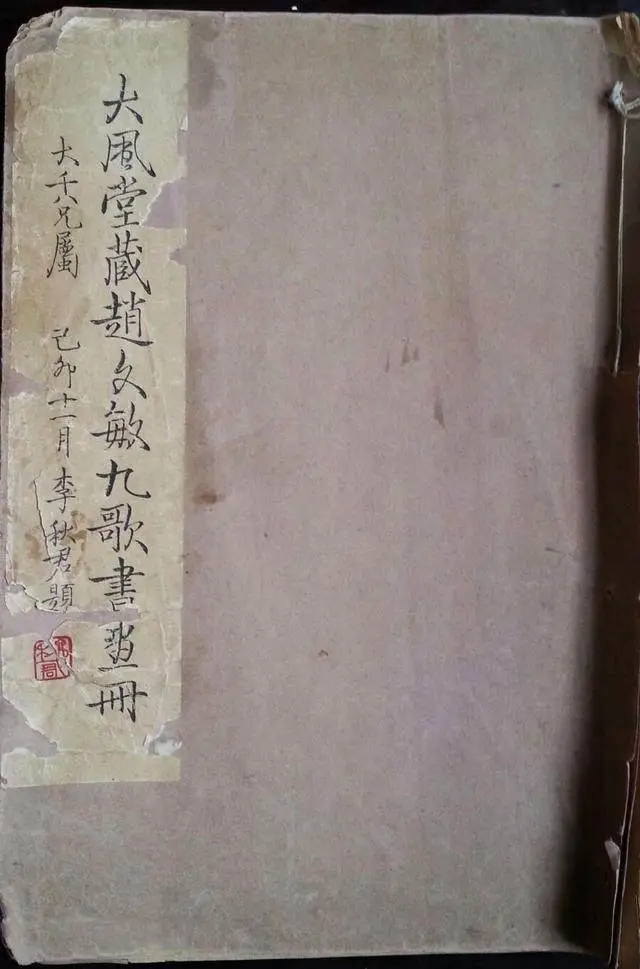 大風堂藏趙文敏九歌書畫冊
大千八兄屬　己卯十一月　李秋君題